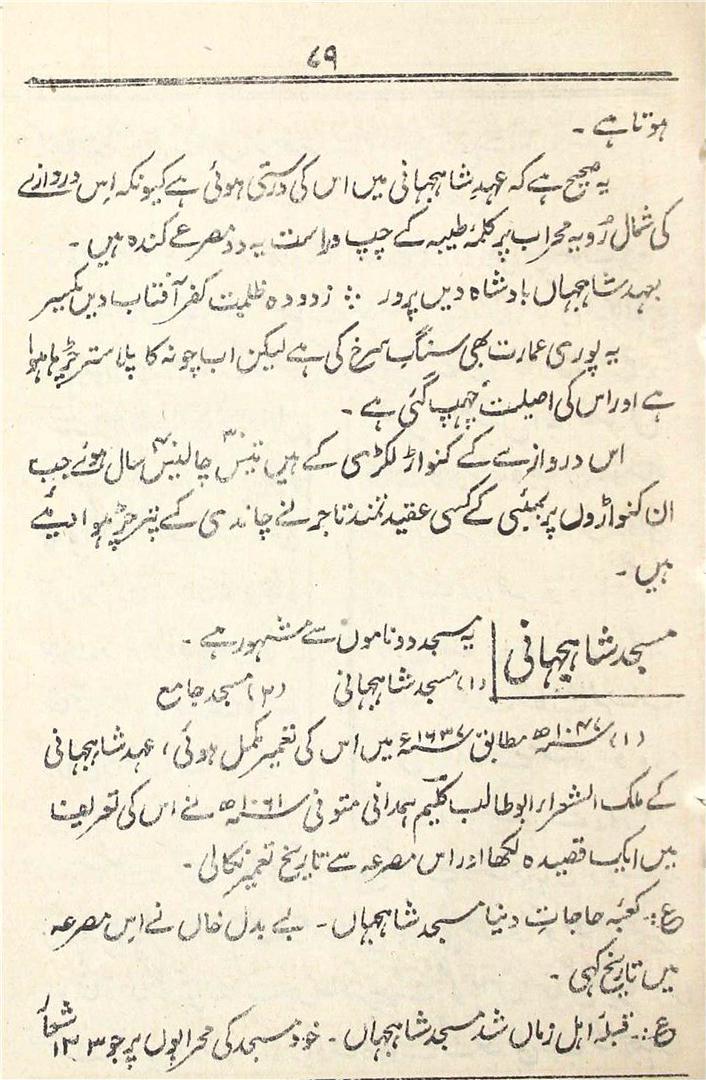 ۸۹
ہوتا ہے ۔
یہ صحیح ہے کہ عہدِ شاہجہانی میں اس کی درستی ہوئی ہے کیونکہ اِس دروازے
کی شمال رُویہ محراب پر کلمۂ طیبہ کے چپ و راست یہ دو مصرعے کندہ ہیں ۔
بعہد شاہجہاں بادشاہ دیں پرور ؞ زدودہ ظلمت کفر آفتاب دیں یکسر
یہ پوری عمارت بھی سنگِ سرخ کی ہے لیکن اب چونہ کا پلاستر چڑھا ہوا
ہے اور اس کی اصلیت چھپ گئی ہے ۔
اس دروازے کے کنواڑ لکڑی کے ہیں تیس۳۰ چالیس۴۰ سال ہوئے جب
ان کنواڑوں پر بمبئی کے کسی عقیدتمند تاجر نے چاندی کے پتر چڑھوا دیئے
ہیں ۔
مسجد شاہجہانی
یہ مسجد دو ناموں سے مشہور ہے ۔
(۱) مسجد شاہجہانی (۲) مسجد جامع
(۱) ۱۰۴۷؁ھ مطابق ۱۶۳۷؁ء میں اس کی تعمیر مکمل ہوئی، عہد شاہجہانی
کے ملک الشعراء ابوطالب کلیم ہمدانی متوفی ۱۰۶۱؁ھ نے اس کی تعریف
میں ایک قصیدہ لکھا اور اس مصرعہ سے تاریخ تعمیر نکالی ۔
ع :۔ کعبۂ حاجاتِ دنیا مسجد شاہجہاں ۔ بے بدل خاں نے اِس مصرعہ
میں تاریخ کہی ۔
ع :۔ قبلۂ اہل زماں شد مسجد شاہجہاں ۔ خود مسجد کی محرابوں پر جو ۳۳ اشعار